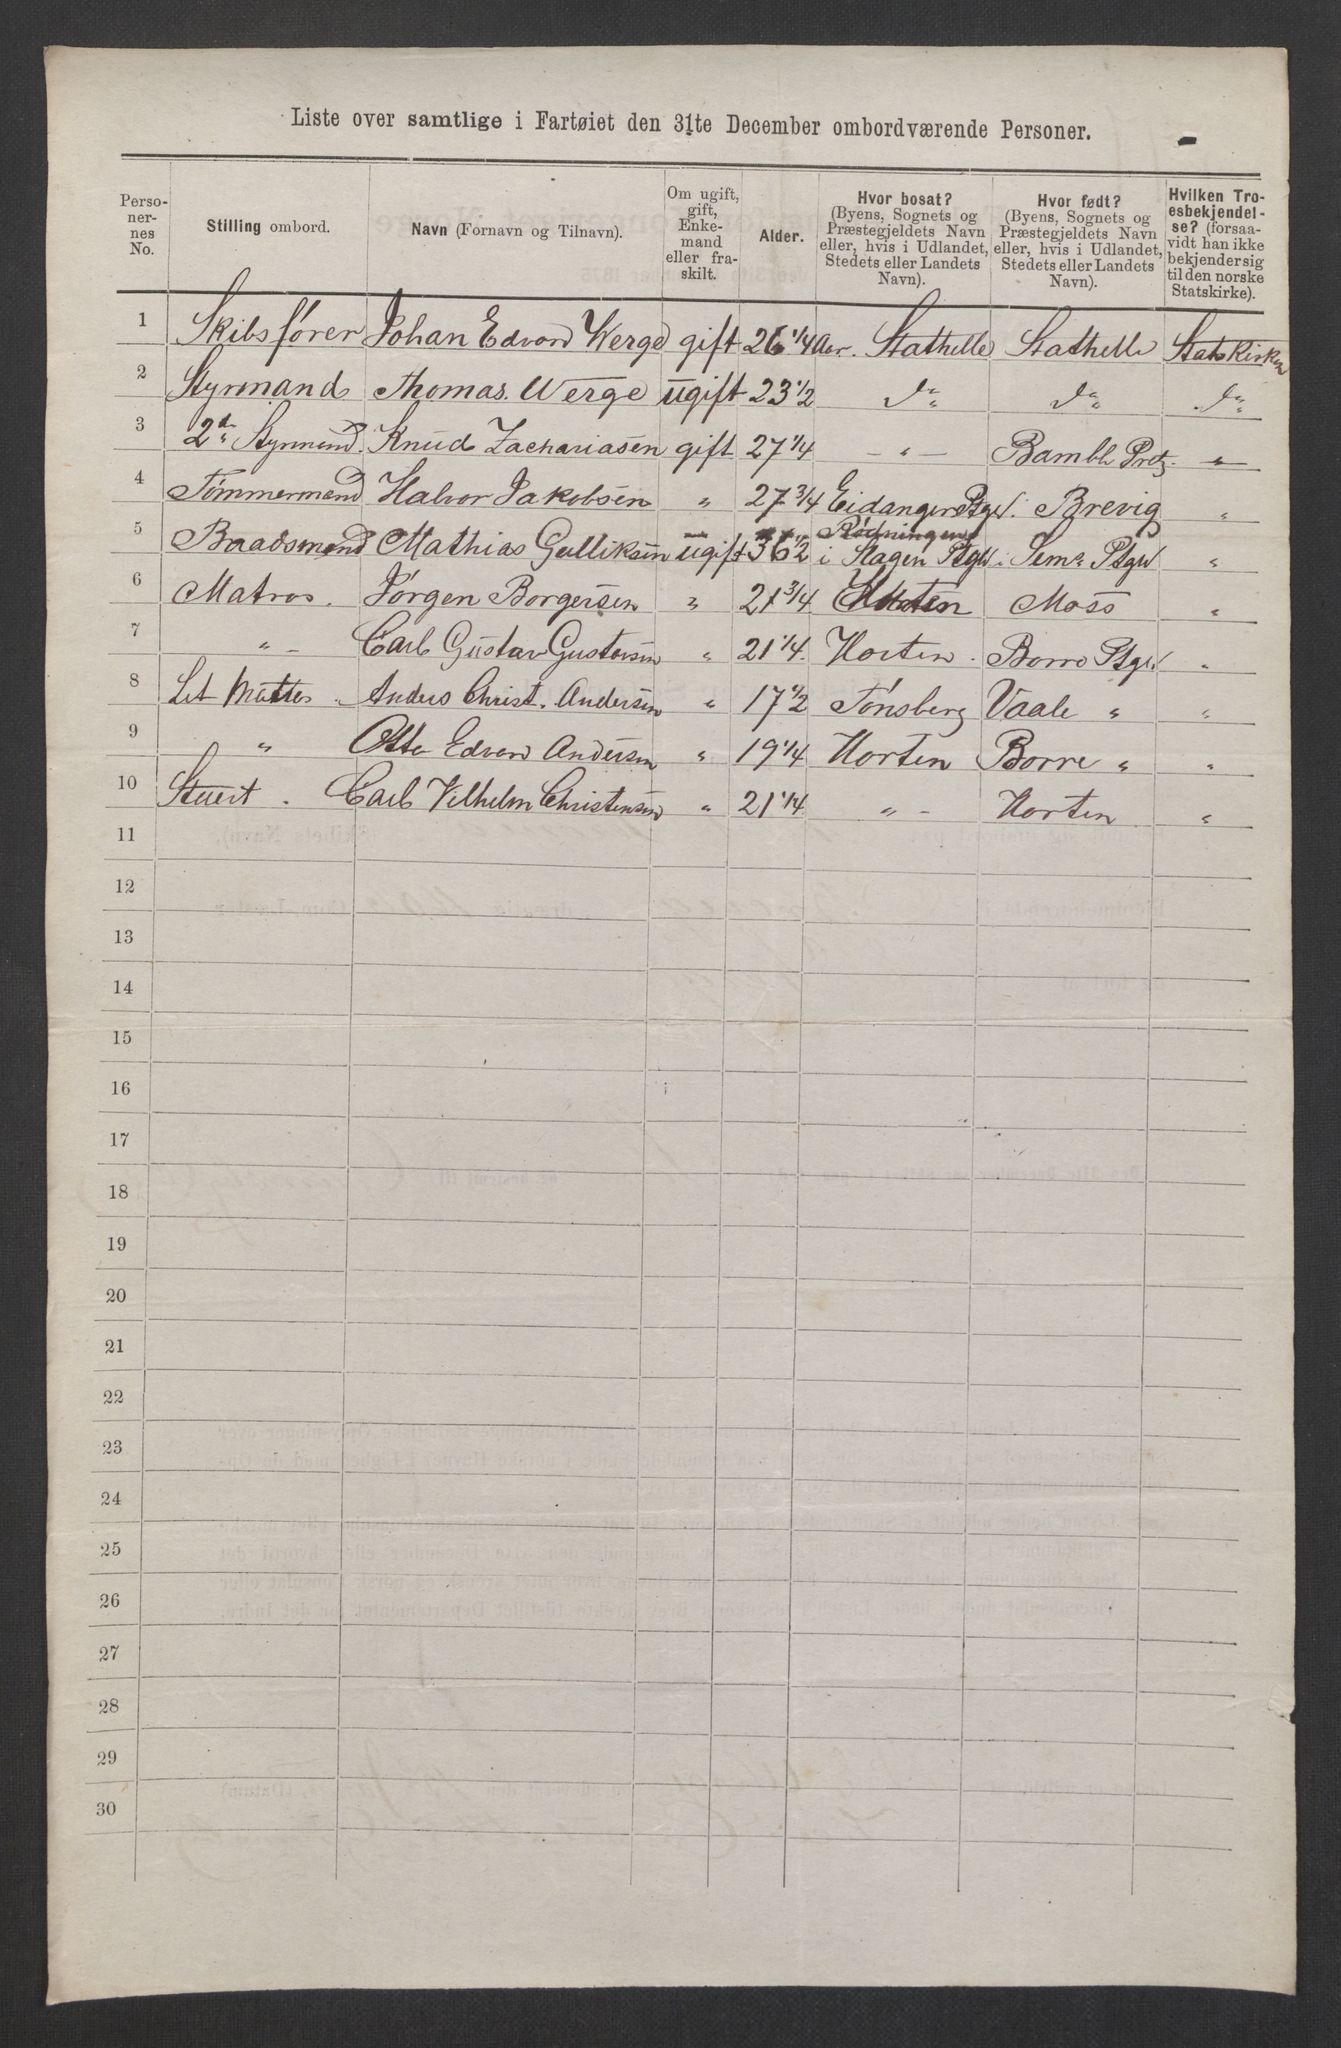 Liste over samtlige i Fartøiet den 31te December ombordværende Personer.
Personernes No. | Stilling ombord. | Navn (Fornavn og Tilnavn). | Om ugift, gift, Enkemand eller fraskilt. | Alder. | Hvor bosat? (Byens, Sognets og Præstegjeldets Navn eller, hvis i Udlandet, Stedets eller Landets Navn). | Hvor født? (Byens, Sognets og Præstegjeldets Navn eller, hvis i Udlandet, Stedets eller Landets Navn). | Hvilken Troesbekjendelse? (forsaavidt han ikke bekjender sig til den norske Statskirke).
1 Skibsfører Johan Edvard Werge gift 26 1/4 Aar. Stathelle Stathelle Statskirken
2 Styrmand Thomas. Werge ugift 23 1/2 Do Do Do
3 2den Styrmand. Knud Zachariasen gift 27 1/4 — " — Bamble Prtg. "
4 Tømmermand Halvor Jakobsen " 27 3/4 Eidanger Ptgld. Brevig "
5 Baadsmand Mathias Gulliksen ugift 36 1/2 Rødningen i Slagen Ptgld. Sems Ptgld "
6 Matros. Jørgen Borgersen " 21 3/4 Horten Moss "
7 " — Carl Gustav Gustavsen " 21 1/4. Horten. Borre Ptgld "
8 Let Matros. Anders Christ. Andersen " 17 1/2 Tønsberg Vaale " "
9 " Otto Edvard Andersen " 19 1/4 Horten Borre " "
10 Stuert. Carl Vilhelm Christensen " 21 1/4 " — Horten "
11
12
13
14
15
16
17
18
19
20
21
22
23
24
25
26
27
28
29
30